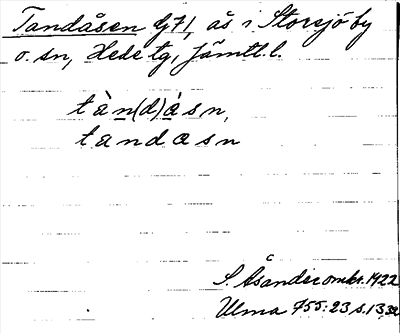 Tandåsen G71, ås i Storsjö by
o. sn, Hede tg, Jämtl. l.
tàn(d)ásn,
tandasn
S. Åsander omkr. 1922
Ulma 755:23 s. 13,32